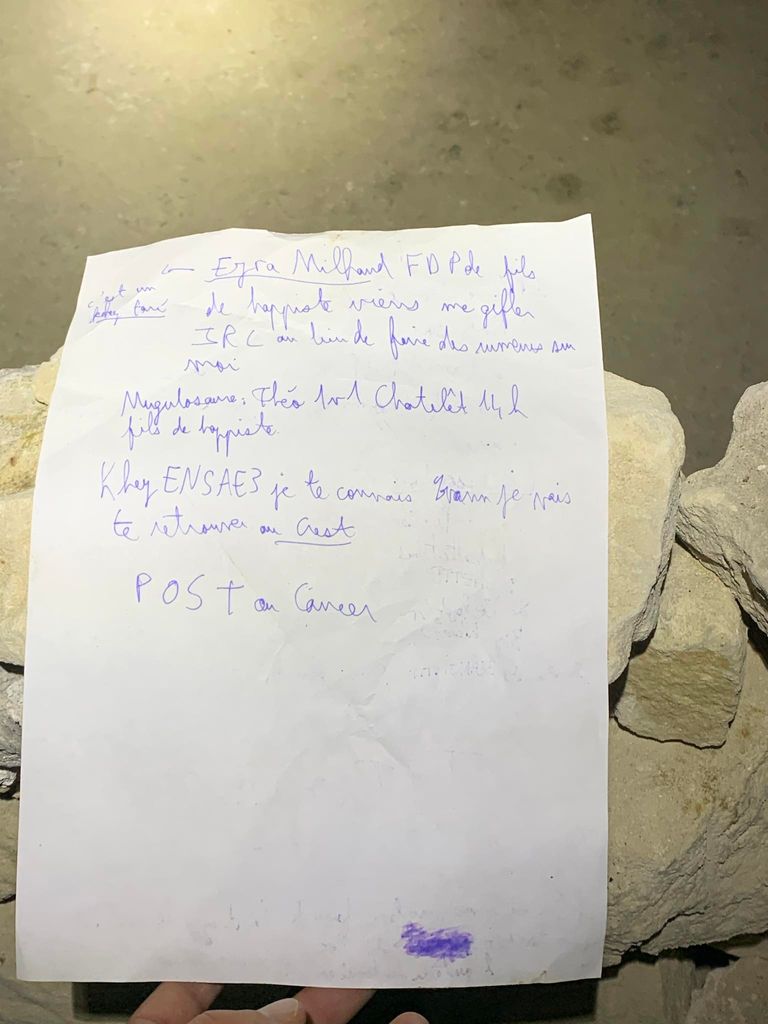 ← Ezra Milhaud FDP de fils
c'est un
taré
de tappiste viens me gifler
IRL au lieu de faire des rumeurs sur
moi
Mugulosaure : Théo 1v1 Chatelêt 14h
fils de tappiste
Khey ENSAE3 je te connais je vais
te retrouver au Crest
POST ou Cancer